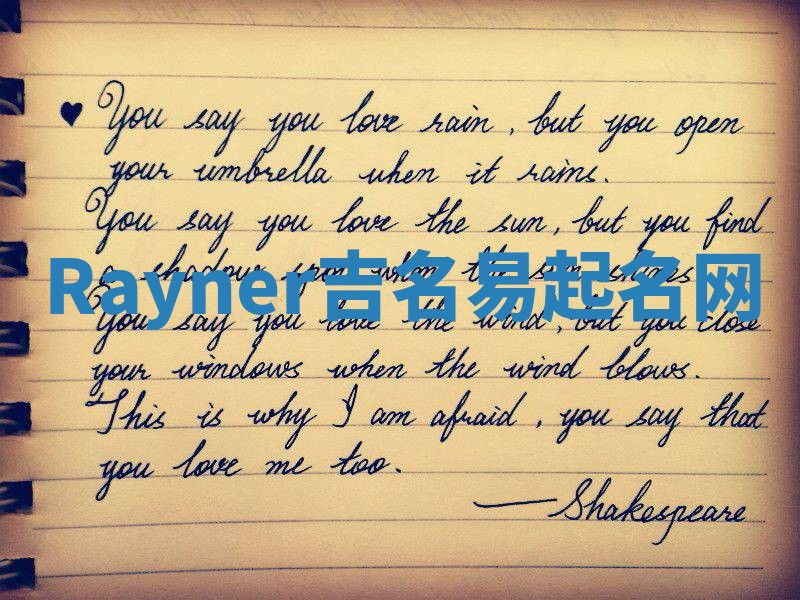 You say you love rain, but you open
your umbrella when it rains.
You say you love the sun, but you find
a shadow spot when the sun shines
Rayner吉名易起名网
You say you love the wind, but you close
your windows when the wind blows.
This is why I am afraid, you say that
you love me too.
—Shakespeare